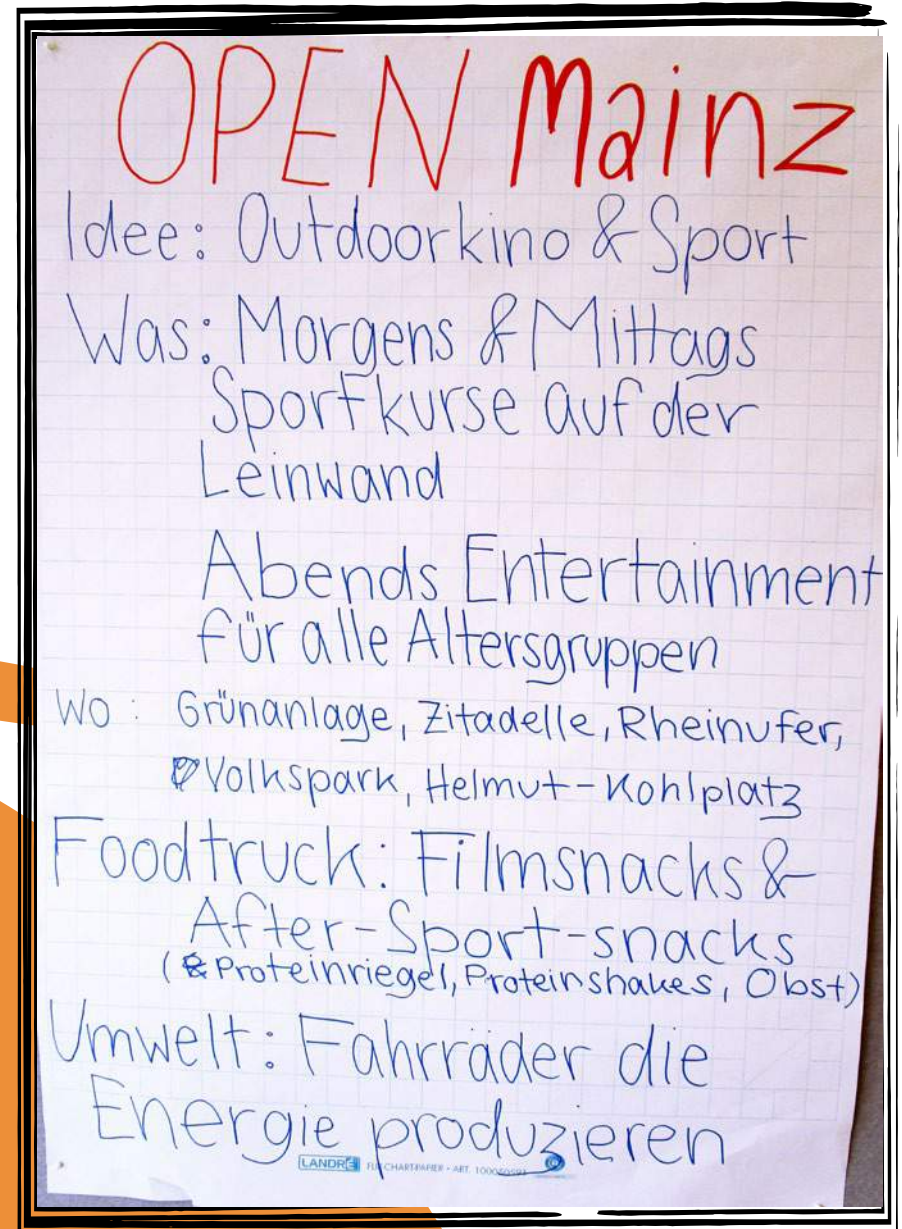 OPEN Mainz
Idee: Outdoorkino & Sport
Was: Morgens & Mittags
Sportkurse auf der
Leinwand
Abends Entertainment
für alle Altersgruppen
Wo: Grünanlage, Zitadelle, Rheinufer,
Volkspark, Helmut-Kohlplatz
Foodtruck: Filmsnacks &
After-Sport-snacks
(Proteinriegel, Proteinshakes, Obst)
Umwelt: Fahrräder die
Energie produzieren
LANDRÉ CHART-PAPIER • ART.